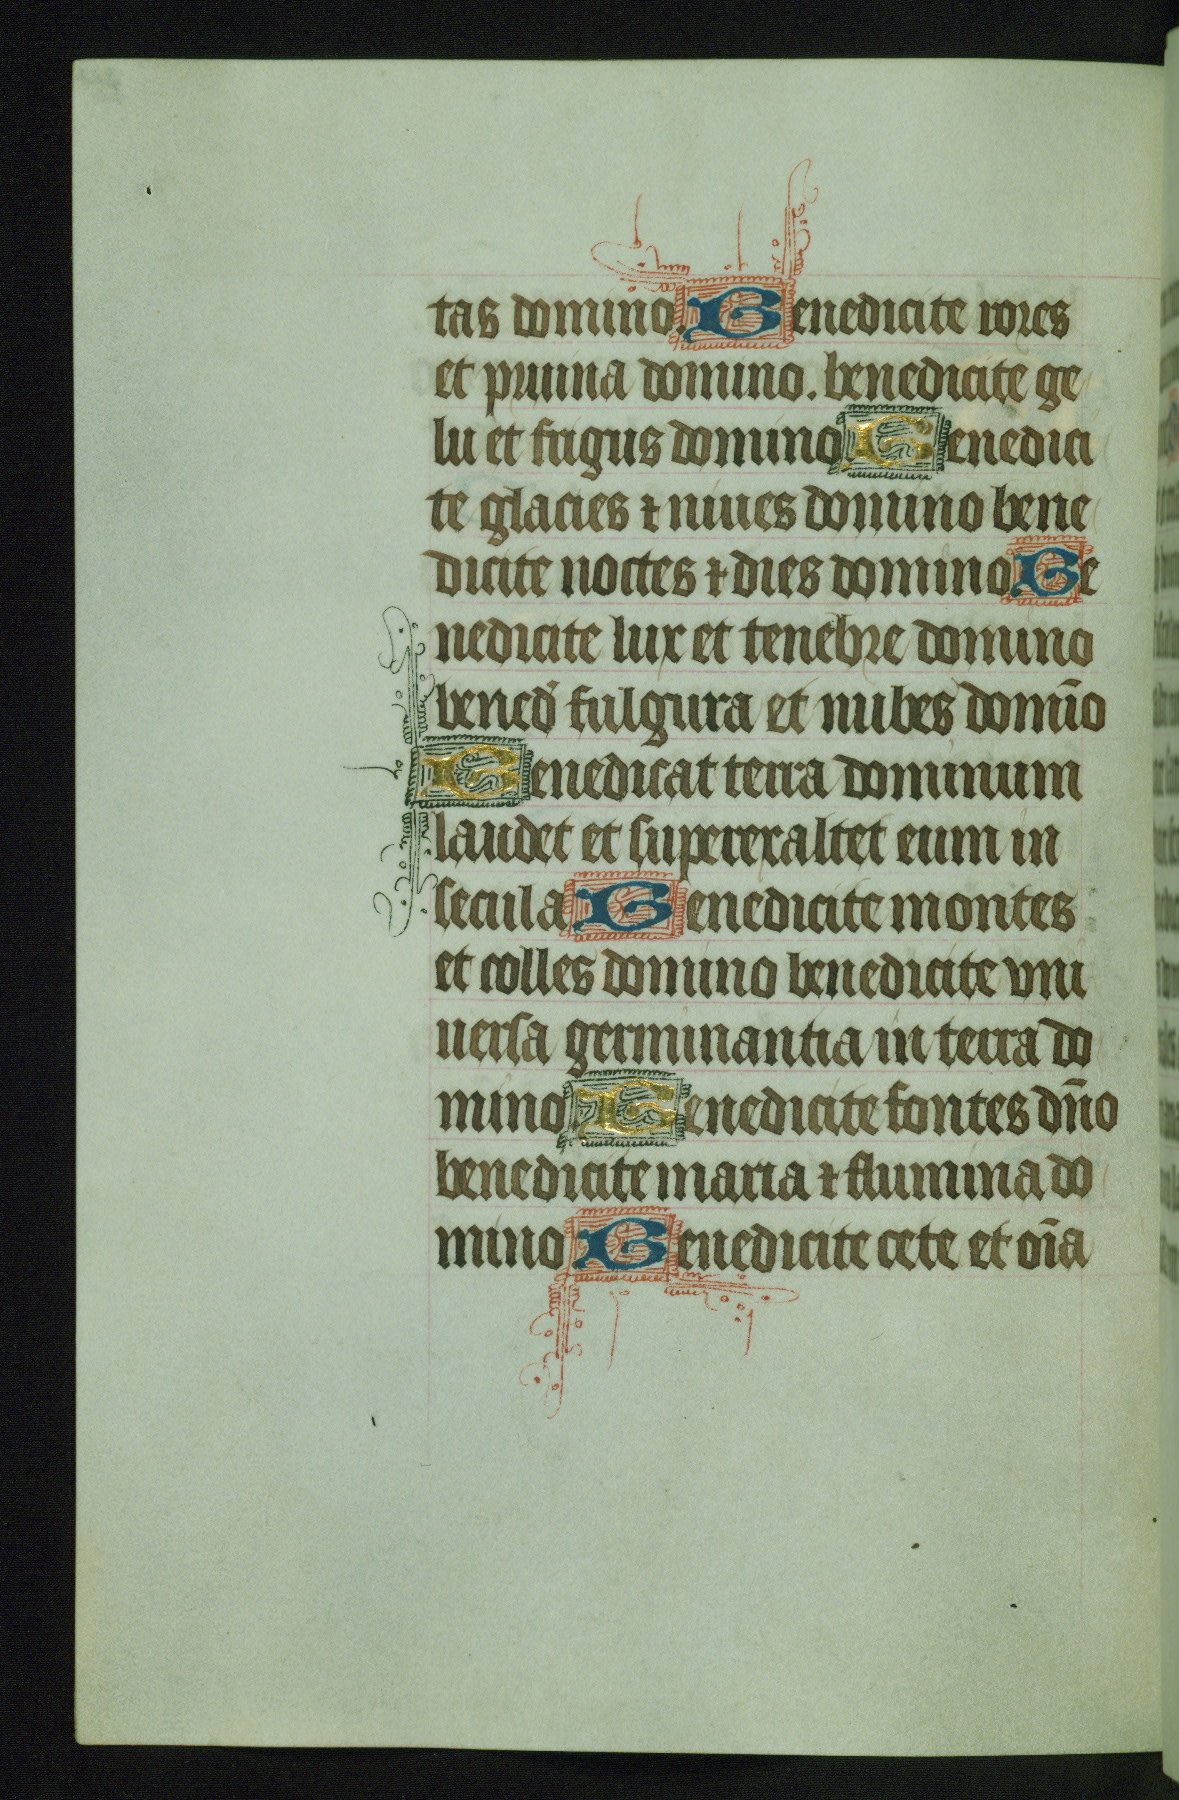 tas domino. Benedicite rores
et pruina domino. benedicite ge
lu et frigus domino Benedici
te glacies ⁊ niues domino bene
dicite noctes ⁊ dies domino Be
nedicite lux et tenebre domino
bened̉ fulgura et nubes domīo
Benedicat terra dominum
laudet et superexaltet eum in
secula Benedicite montes
et colles domino benedicite vni
uersa germinantia in terra do
mino Benedicite fontes dn̄o
benedicite maria ⁊ flumina do
mino Benedicite cete et oīa